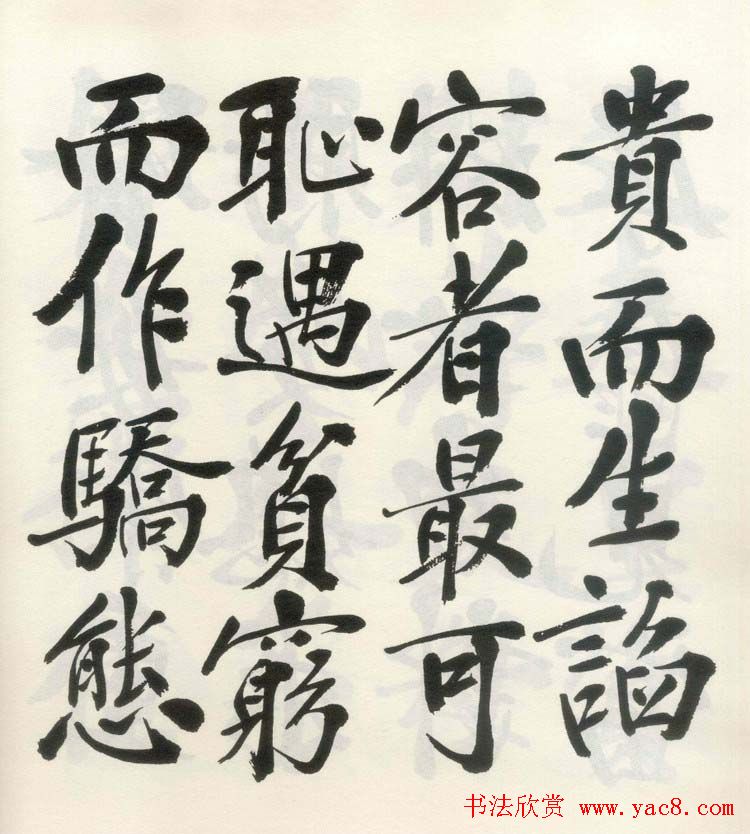 貴而生諂
容者最可
恥遇貧窮
而作驕態
书法欣赏 www.yac8.com